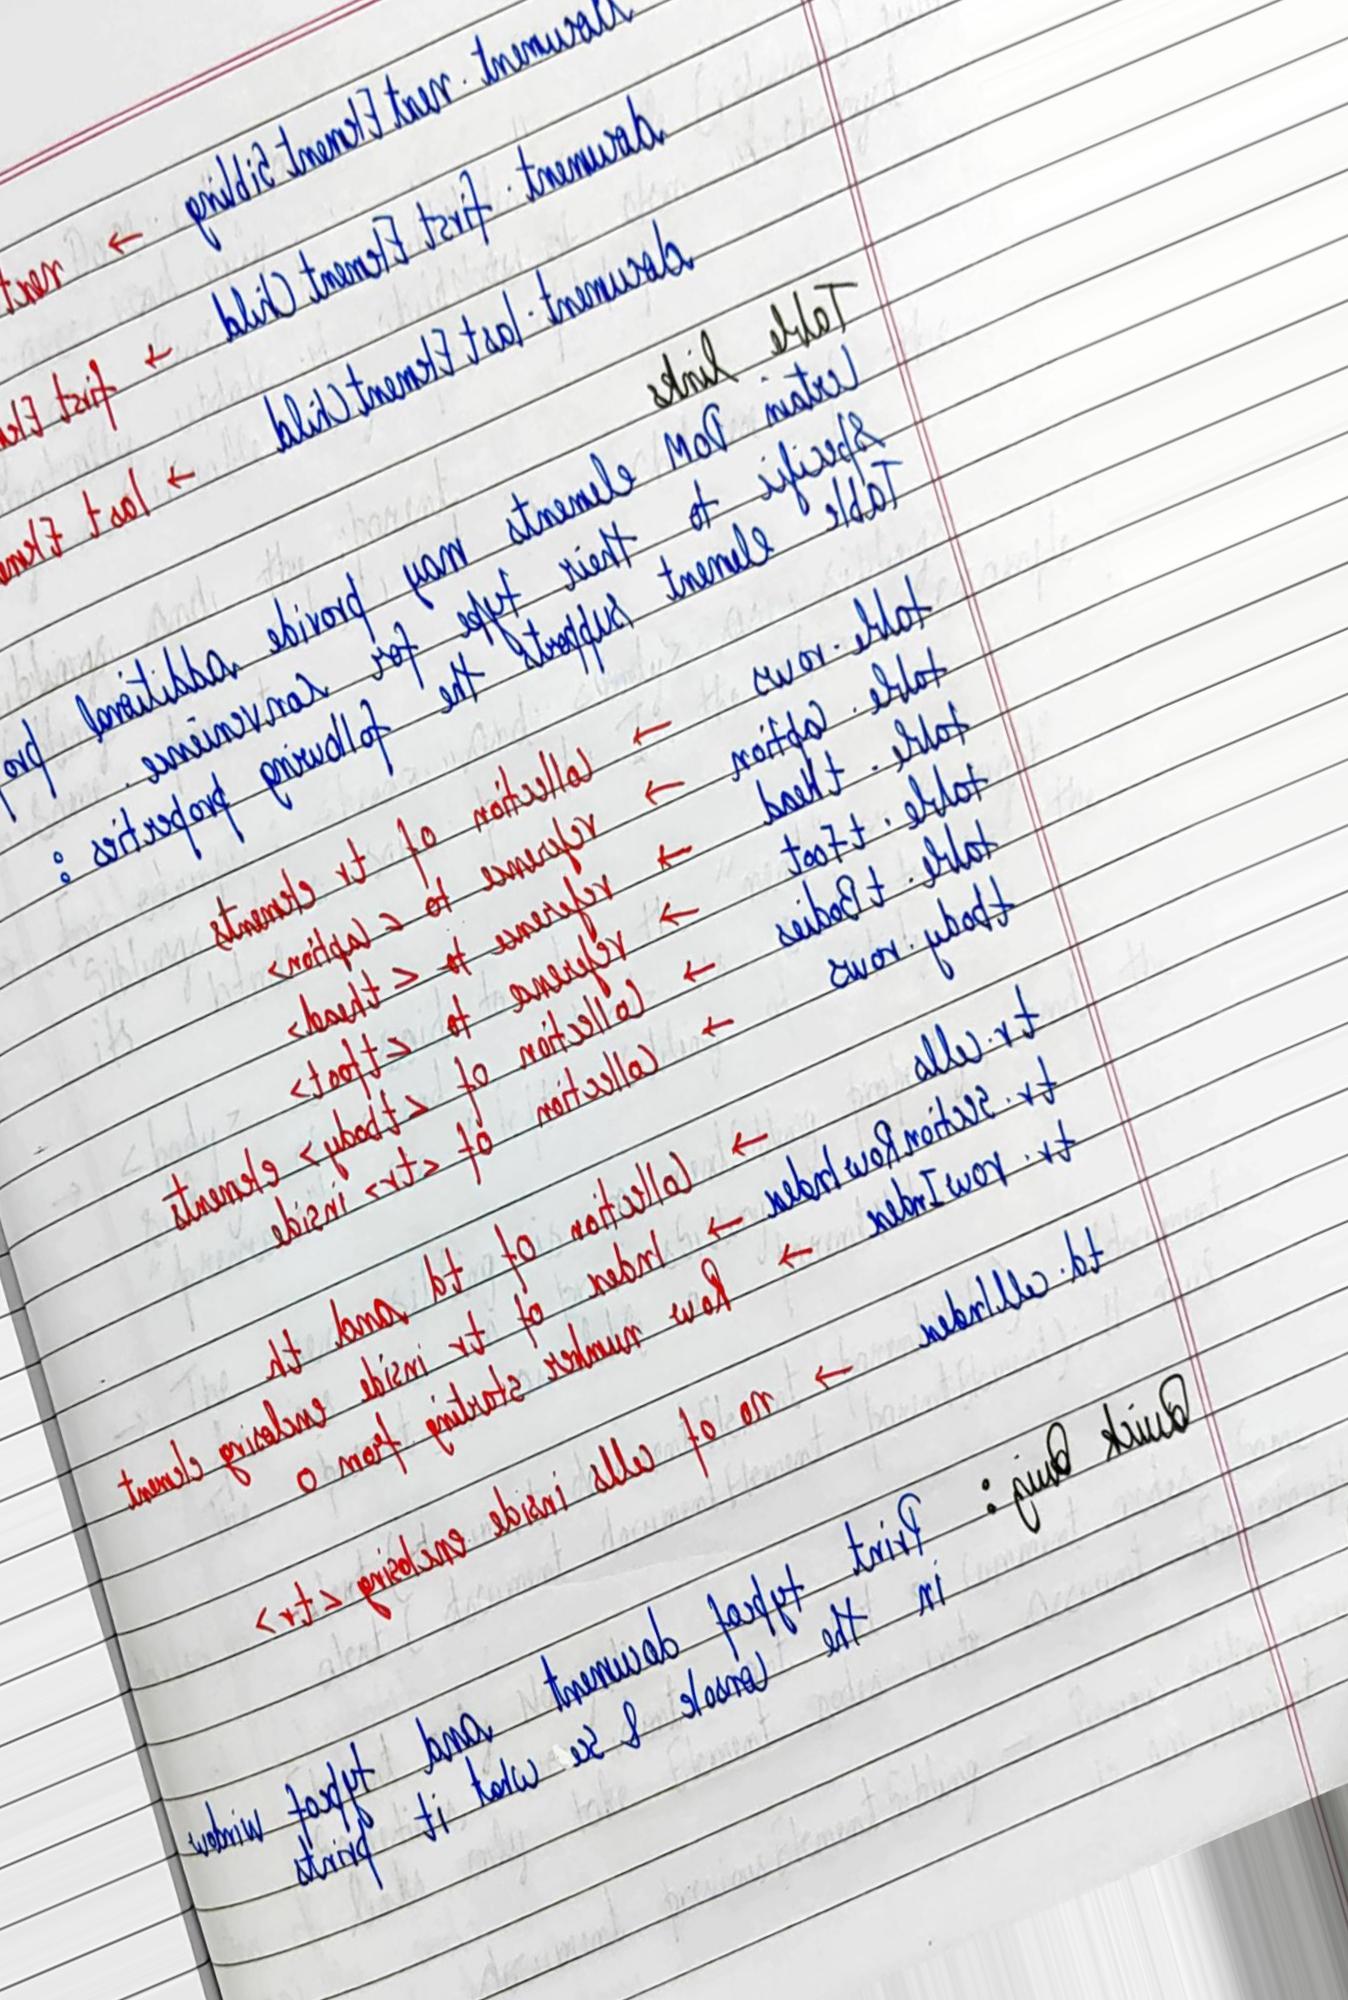 document.nextElementSibling → next
document.firstElementChild → first Ele
document.lastElementChild → last Eleme
Table links
Certain DOM elements may provide additional prop
specific to their type for convenience.
Table element supports the following properties :
table.rows → collection of tr elements
table.caption → reference to <caption>
table.tHead → reference to <thead>
table.tFoot → reference to <tfoot>
table.tBodies → collection of <tbody> elements
tbody.rows → collection of <tr> inside
tr.cells → collection of td and th
tr.sectionRowIndex → Index of tr inside enclosing element
tr.rowIndex → Row number starting from 0
td.cellIndex → no of cells inside enclosing <tr>
Quick Quiz : Print typeof document and typeof window
in the console & see what it prints